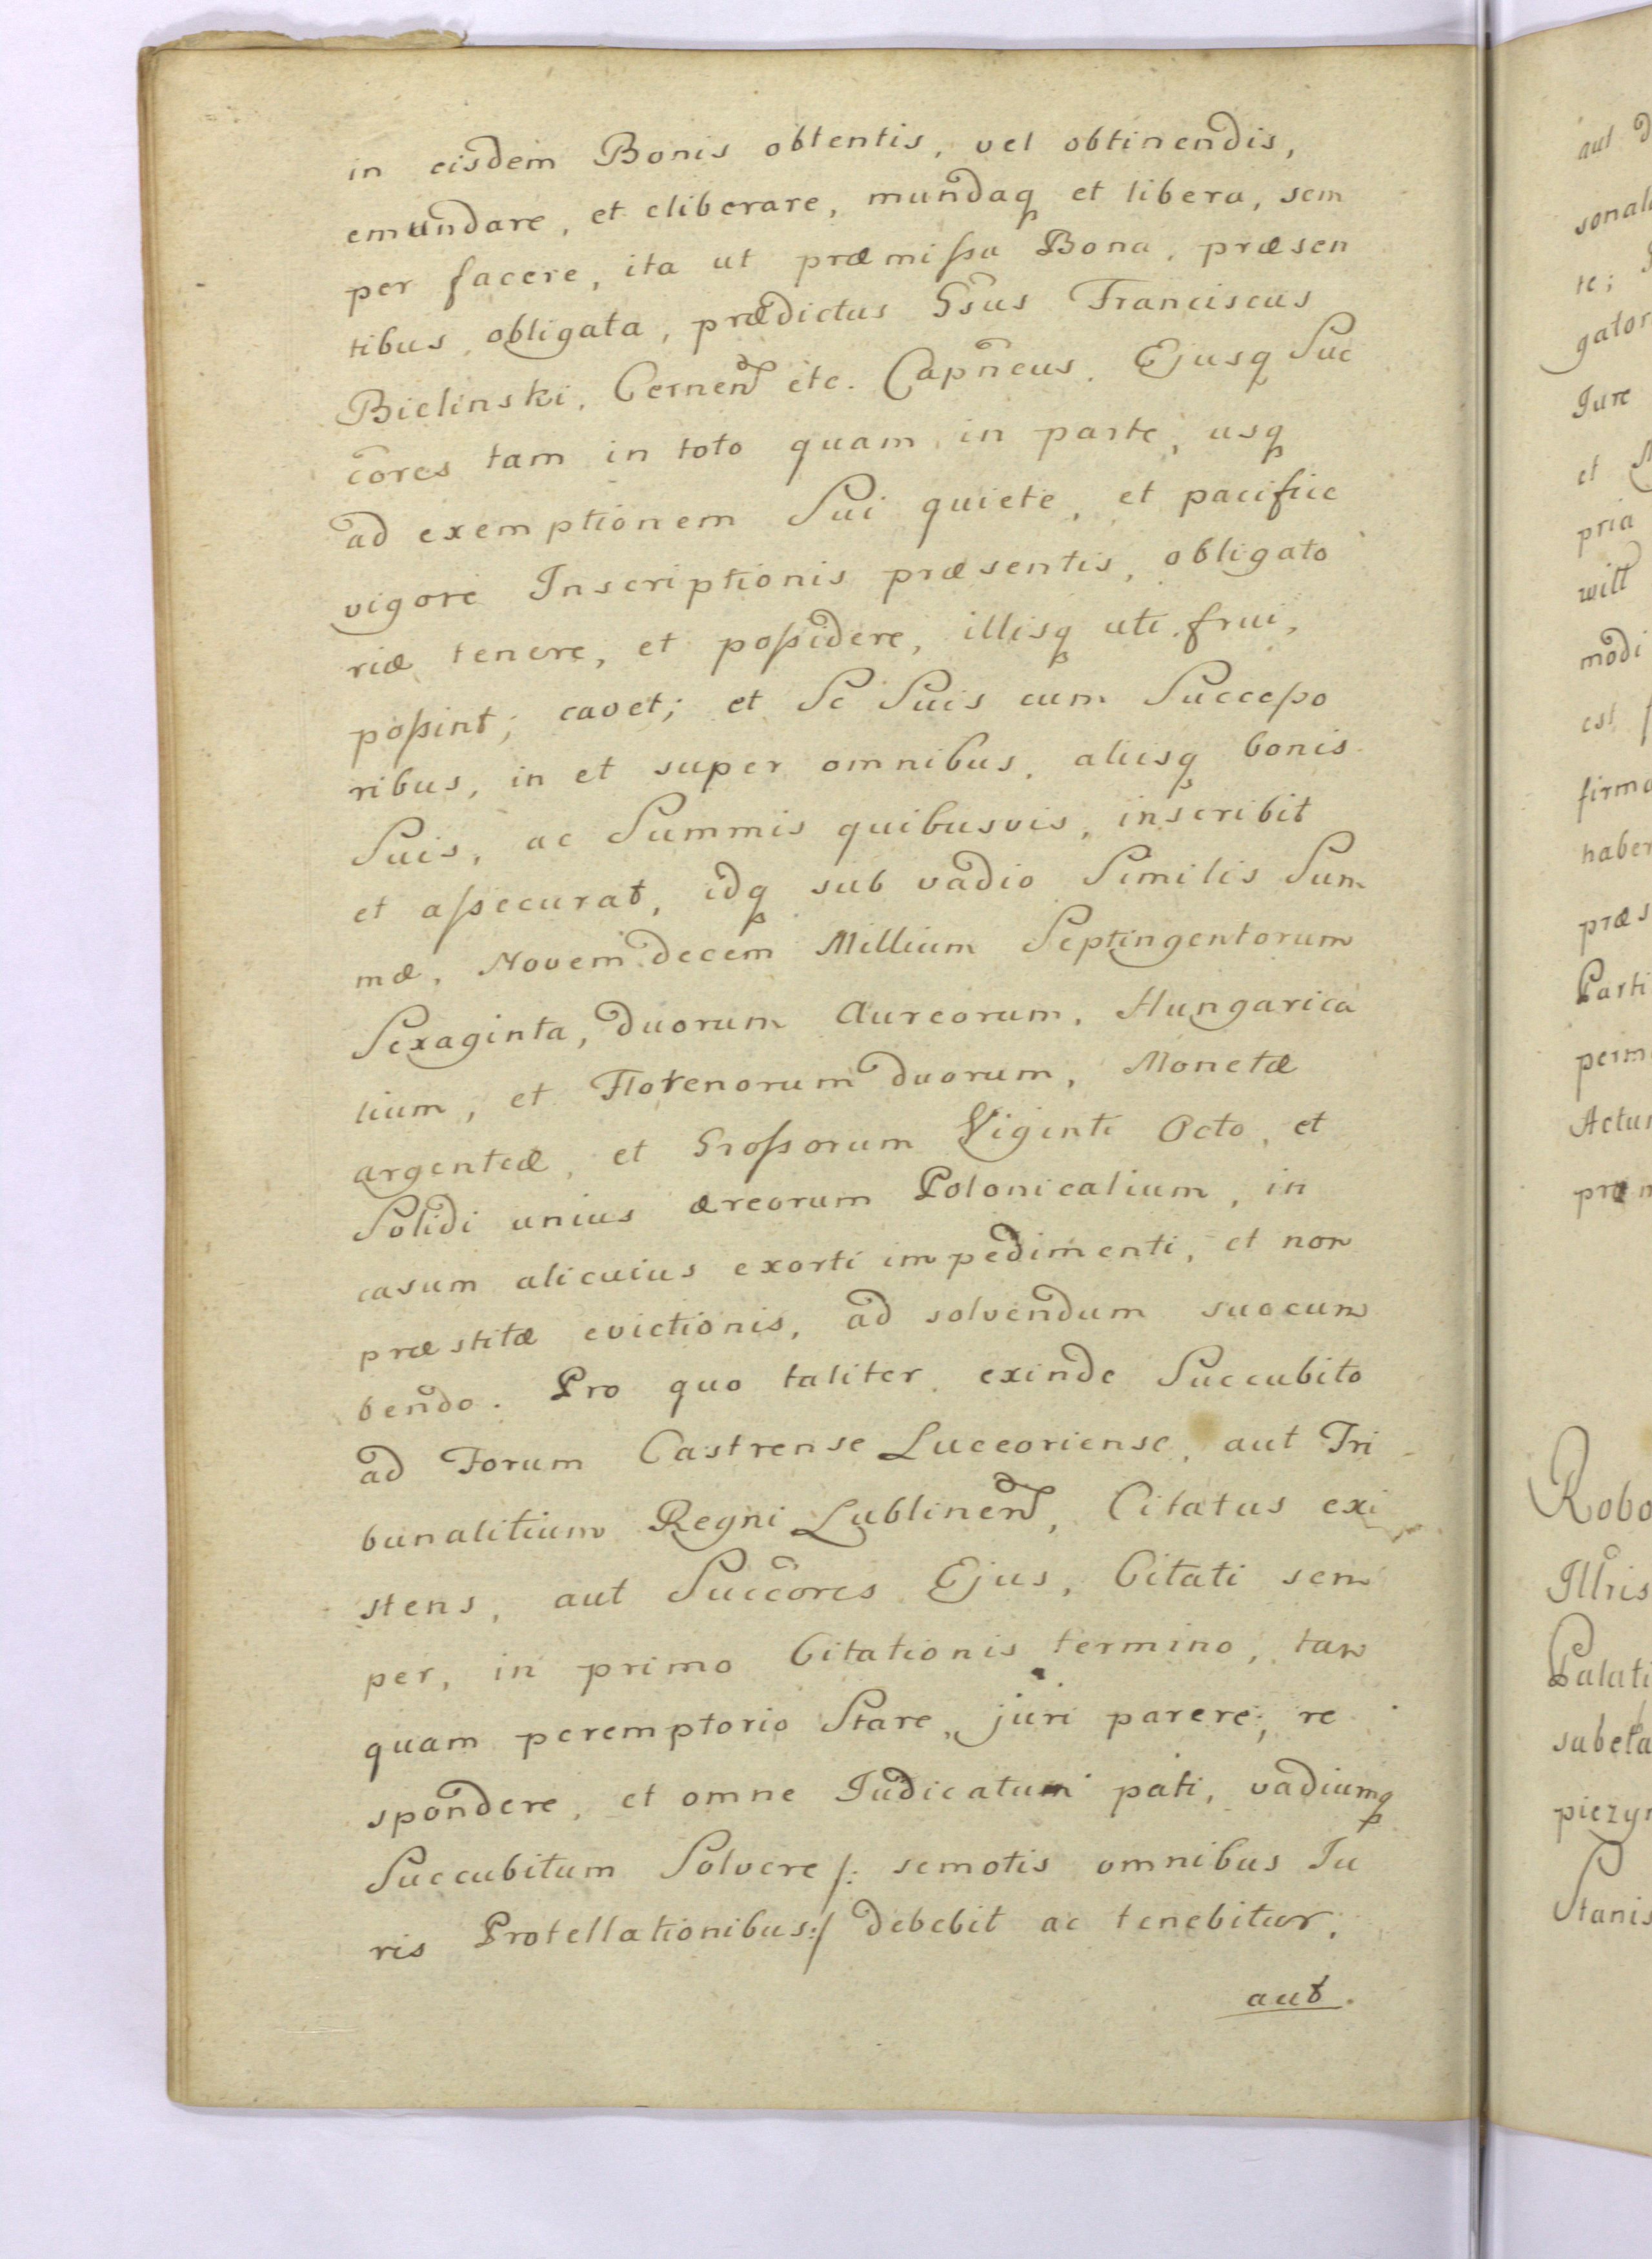 in eisdem Bonis obtentis, vel obtinendis,
emundare, et eliberare, mundaq₃ et libera, sem
per facere, ita ut præmißa Bona, præsen
tibus obligata, prædictus Gsus Franciscus
Bielinski, Cernen̄ etc. Capn̄eus, Ejusq₃ Suc
c̄ores tam in toto quam in parte, usq₃
ad exemptionem Sui quiete, et pacifice
vigore Inscriptionis præsentis, obligato
riæ tenere, et poßidere, illisq₃ uti frui,
poßint; cavet; et Se Suis cum Succeßo
ribus, in et super omnibus, aliisq₃ bonis
Suis, ac Summis quibusvis, inscribit
et aßecurat, idq₃ sub vadio Similis Sum
mæ, Novem decem Millium Septingentorum
Sexaginta, duorum Aureorum, Hungarica
lium, et Florenorum duorum, Monetæ
argenteæ, et Großorum Viginti Octo, et
Solidi unius æreorum Polonicalium, in
casum alicuius exorti impedimenti, et non
præstitæ evictionis, ad solvendum succum
bendo. Pro quo taliter exinde Succubito
ad Forum Castrense Luceoriense, aut Tri
bunalitium Regni Lublinen̄, Citatus exi
stens, aut Succ̄ores Ejus, Citati sem
per, in primo Citationis termino, tan
quam peremptorio Stare, juri parere, re
spondere, et omne Iudicatum pati, vadiumq₃
Succubitum Solvere /: semotis omnibus Iu
ris Protellationibus:/ debebit ac tenebitur,
aut.
aut
sonal
te;
gator
Jure
et
pria
will
modi
est
firma
haber
præs
Parti
perm
Actu
Robo
Illris
Palati
subeta
piezyn
Stanis